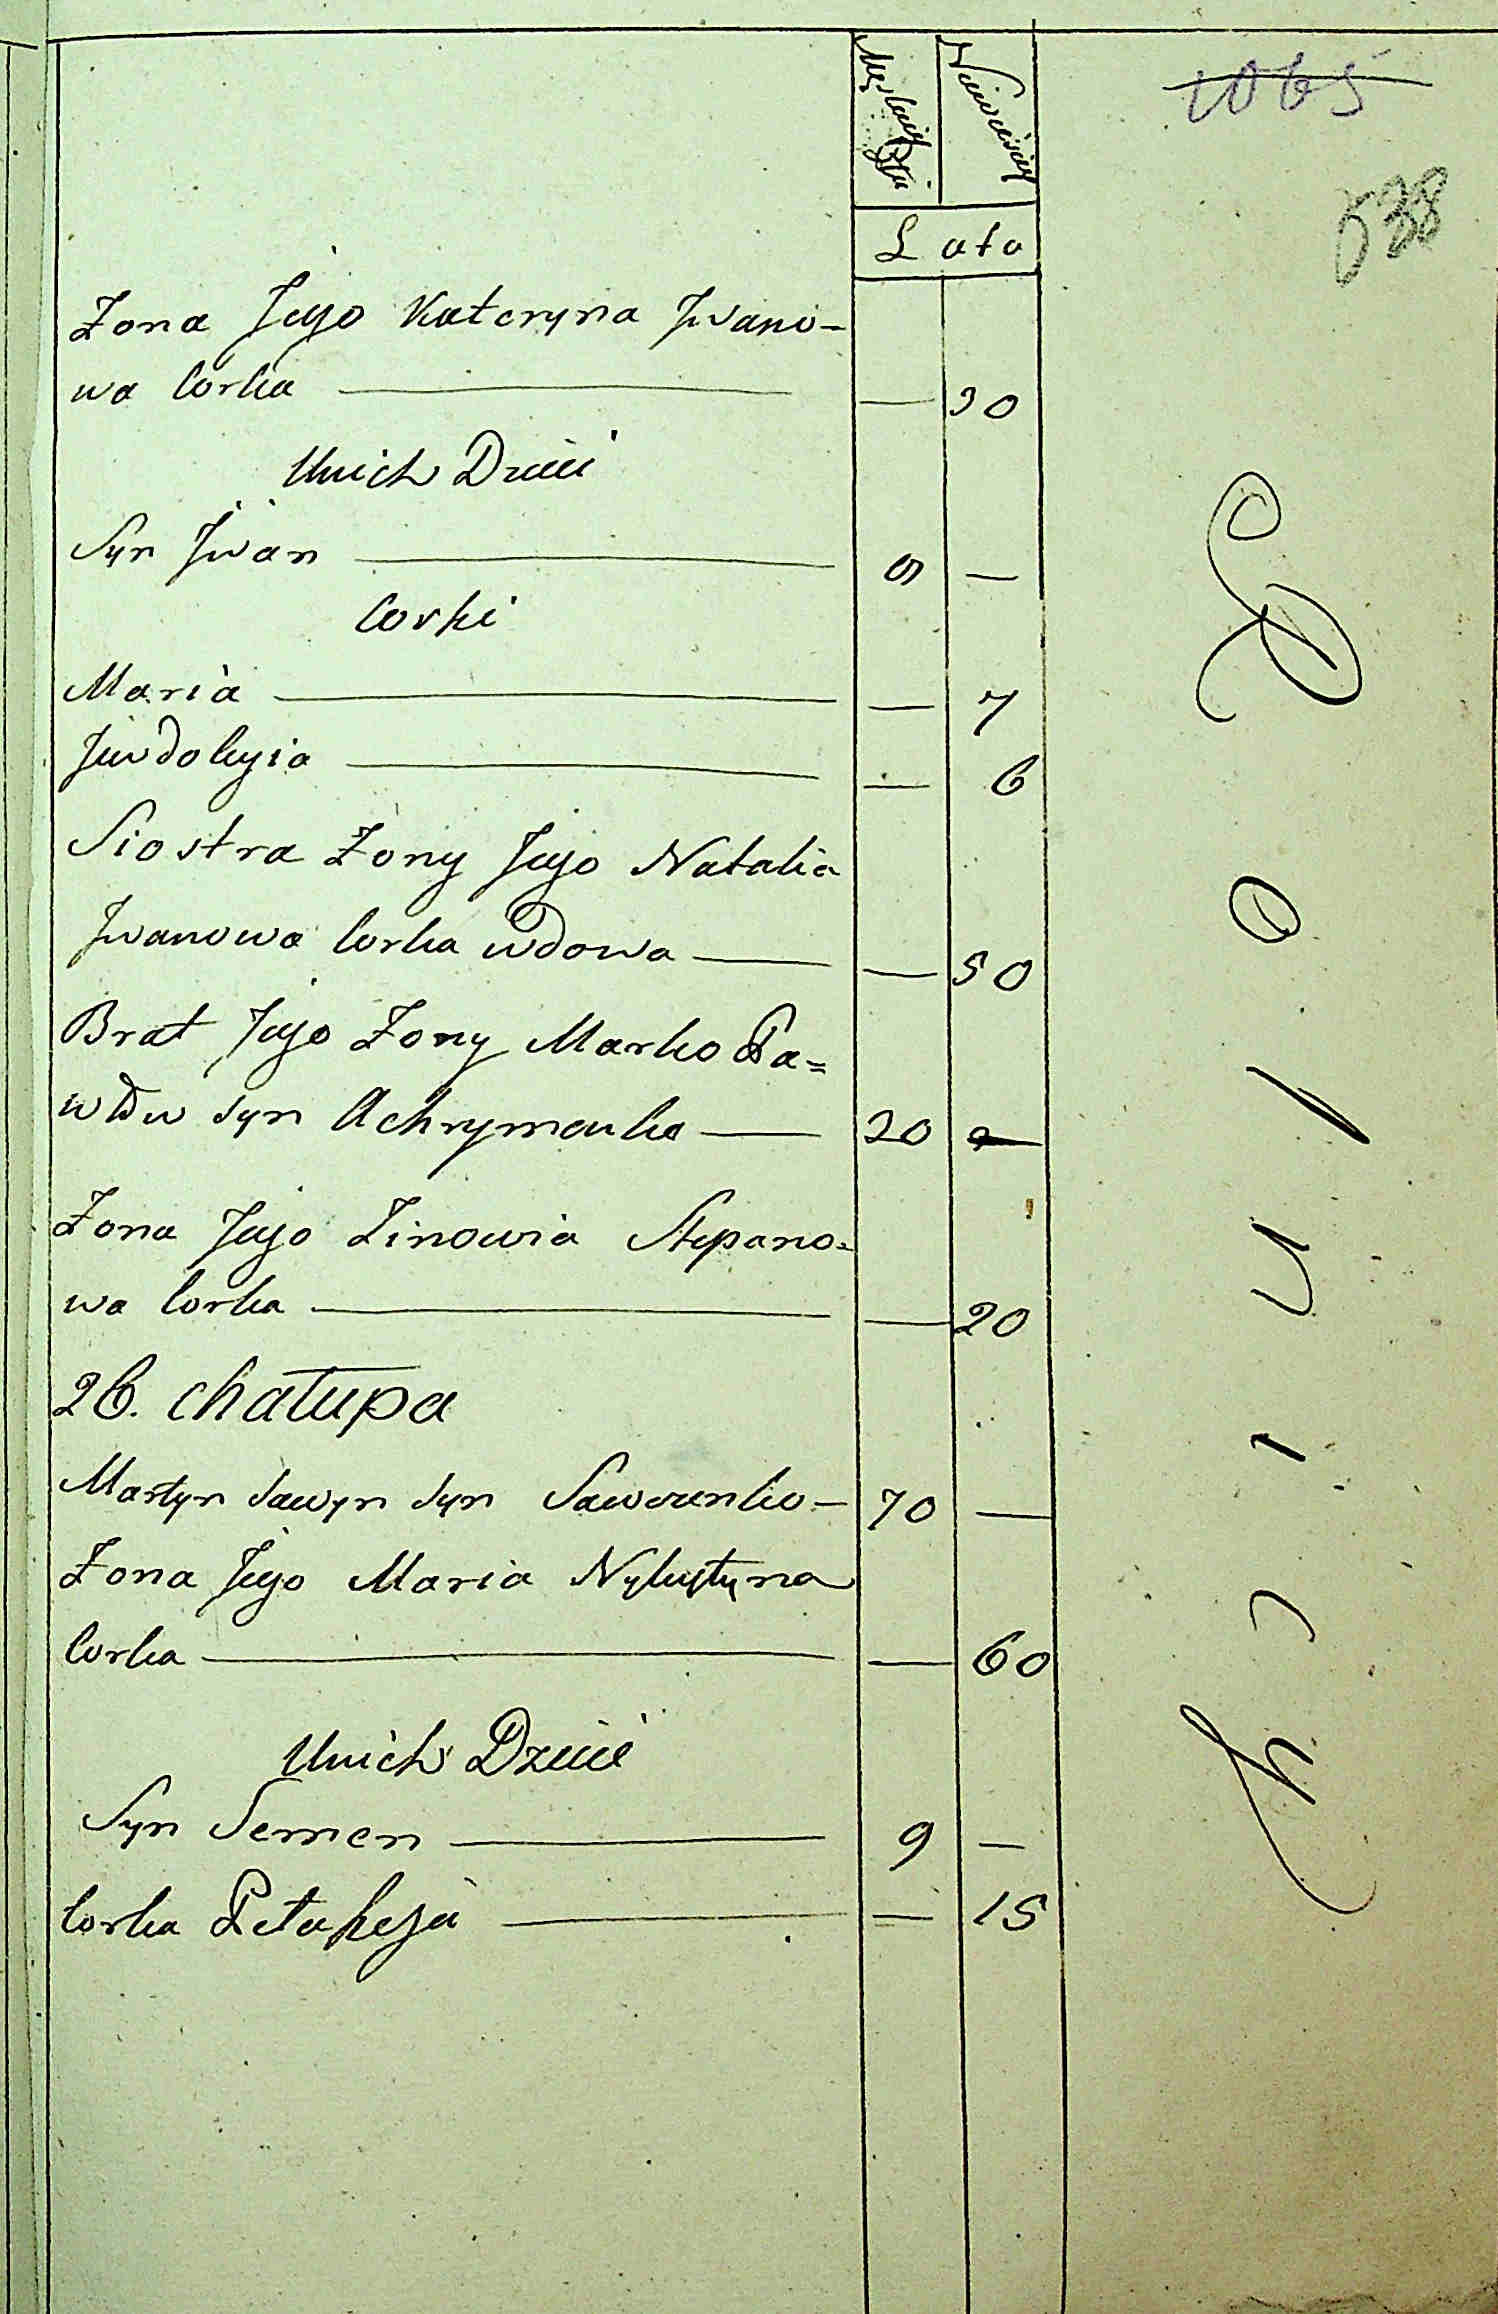 Męskiej Płci
Niewieściej
1065
538
Lata
Żona Jego Kateryna Jwano-
wa Corka — — 30
Unich Dzieci
Syn Jwan — 5 —
Corki
Maria — — 7
Jewdokyia — — 6
Siostra Żony Jego Natalia
Jwanowa Corka wdowa — — 50
Brat Jego Żony Marko Pa=
włow syn Achrymenko — 20 —
Żona Jego Zinowia Stepano=
wa Corka — — 20
26. chałupa
Martyn Sawyn syn Sawczenko — 70 —
Żona Jego Maria Nykystyna
Corka — — 60
Unich Dzieci
Syn Semen — 9 —
Corka Pełaheja — — 15